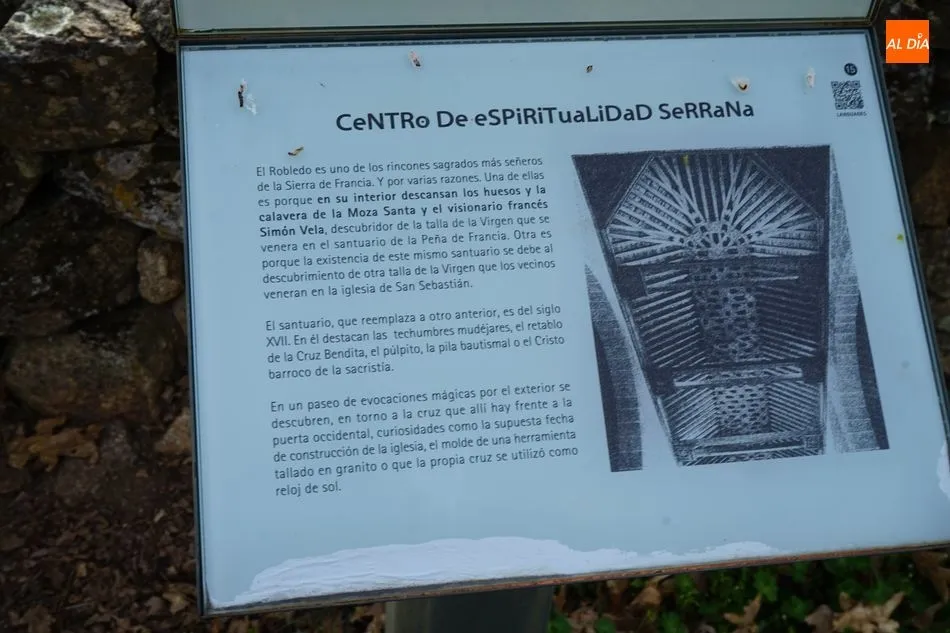 AL DÍA
15
LANGUAGES
CeNTRo De eSPiRiTuaLiDaD SeRRaNa
El Robledo es uno de los rincones sagrados más señeros
de la Sierra de Francia. Y por varias razones. Una de ellas
es porque en su interior descansan los huesos y la
calavera de la Moza Santa y el visionario francés
Simón Vela, descubridor de la talla de la Virgen que se
venera en el santuario de la Peña de Francia. Otra es
porque la existencia de este mismo santuario se debe al
descubrimiento de otra talla de la Virgen que los vecinos
veneran en la iglesia de San Sebastián.
El santuario, que reemplaza a otro anterior, es del siglo
XVII. En él destacan las techumbres mudéjares, el retablo
de la Cruz Bendita, el púlpito, la pila bautismal o el Cristo
barroco de la sacristía.
En un paseo de evocaciones mágicas por el exterior se
descubren, en torno a la cruz que allí hay frente a la
puerta occidental, curiosidades como la supuesta fecha
de construcción de la iglesia, el molde de una herramienta
tallado en granito o que la propia cruz se utilizó como
reloj de sol.